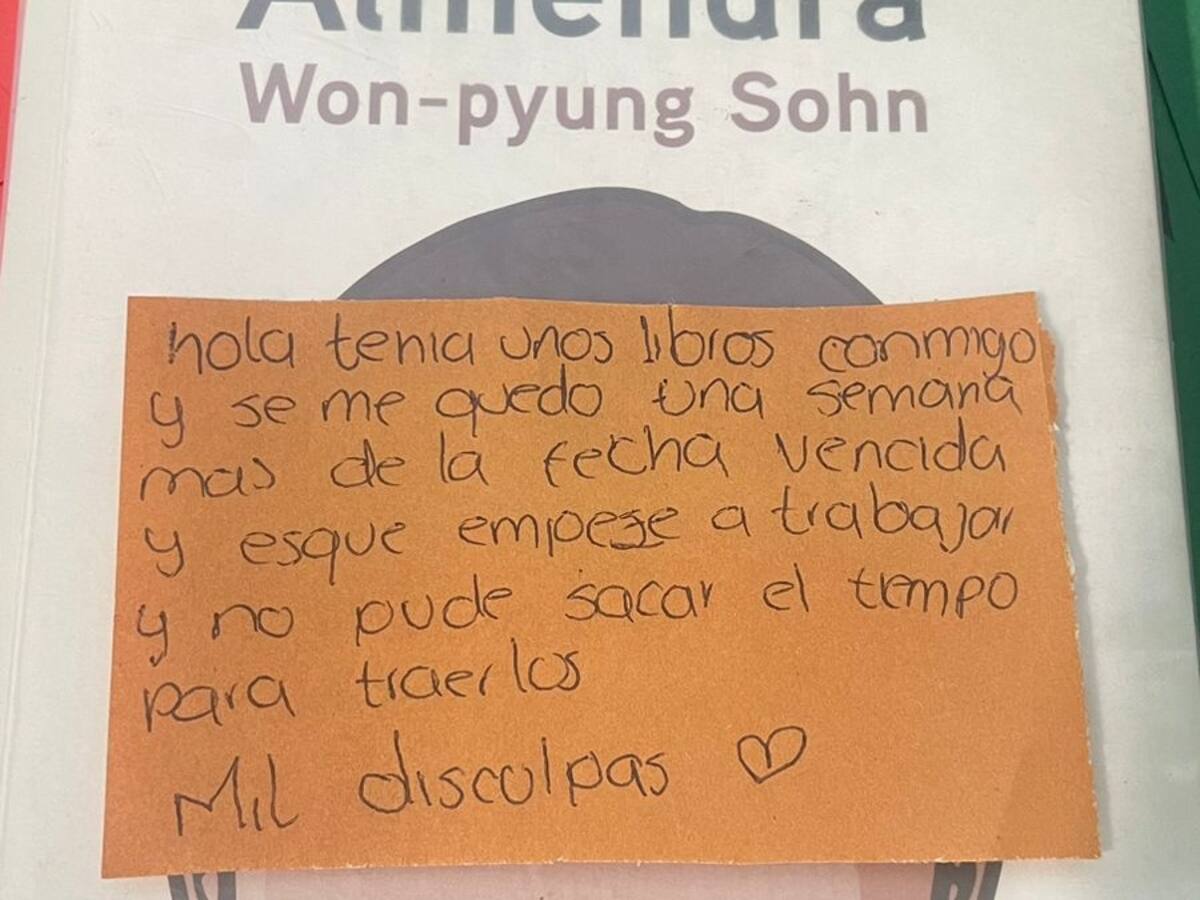 Almendra
Won-pyung Sohn
hola tenia unos libros conmigo
y se me quedo una semana
mas de la fecha vencida
y esque empese a trabajar
y no pude sacar el tiempo
para traerlos
Mil disculpas ♡